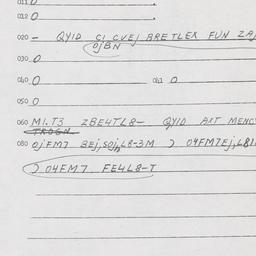 011 0
012 0
020 - QYID CI CVEJ BRETLEX FUN ZA
OJBN
030 0
040 0 041 0
050 0
060 M1.T3 ZBE4TL8- QYID AXT MENC
080 OJFM7 BEJ, SOJ,L8-3M ) 04FM7EJ,L81
) 04FM7. FE4L8-T